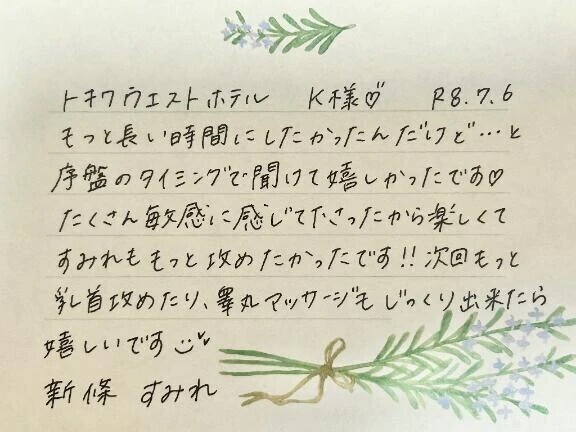 トキワウエストホテル K様♡ R8.7.6
もっと長い時間にしたかったんだけど…と
序盤のタイミングで聞けて嬉しかったです♡
たくさん敏感に感じて下さったから楽しくて
すみれももっと攻めたかったです!!次回もっと
乳首攻めたり、睾丸マッサージもじっくり出来たら
嬉しいです
新條 すみれ